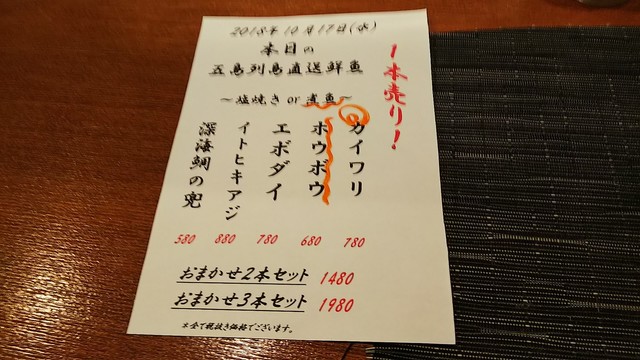 2018年10月17日(水)
本日の
五島列島直送鮮魚
1本売り！
～塩焼き or 煮魚～
カイワリ
ホウボウ
エボダイ
イトヒキアジ
深海鯛の兜
580 880 780 680 780
おまかせ2本セット 1480
おまかせ3本セット 1980
※全て税抜き価格でございます。